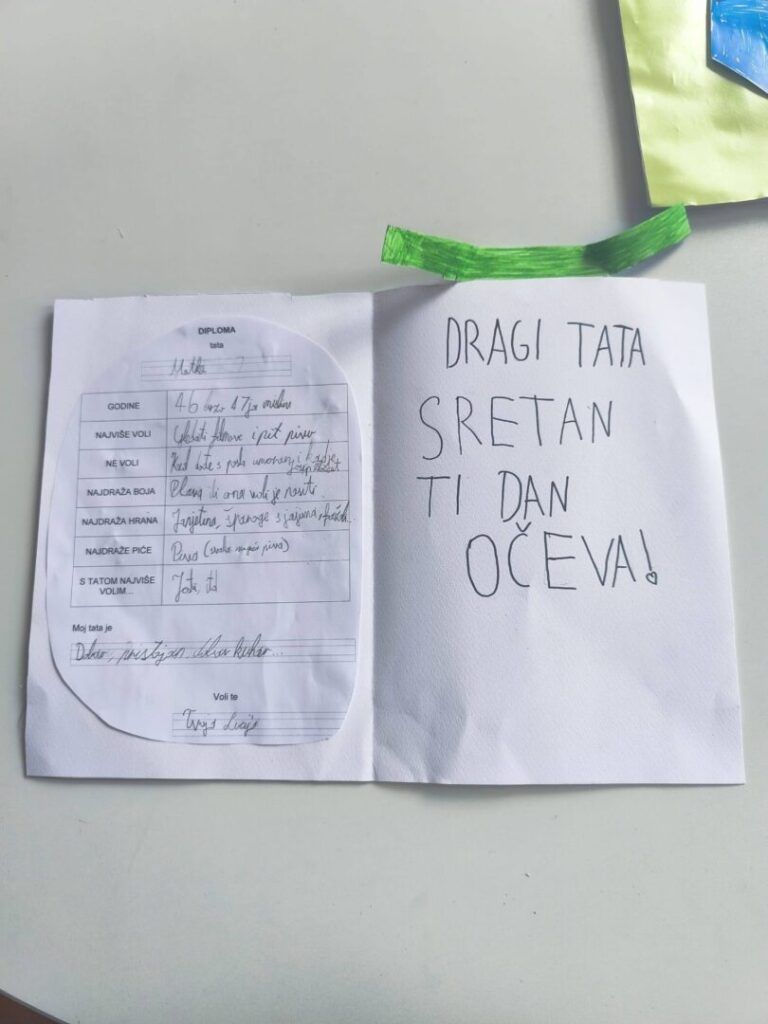 DIPLOMA
tata
Matka
GODINE 46 17
NAJVIŠE VOLI Gledati filmove i pit pivo
NE VOLI Kad dođe s posla umoran i kad je
NAJDRAŽA BOJA Plava ili ona voli je nositi.
NAJDRAŽA HRANA Janjetina, s jajima
NAJDRAŽE PIĆE Pivo (pivo)
S TATOM NAJVIŠE
VOLIM...
Moj tata je
Dobar, pristojan, kuhar...
Voli te
Tvoja Lucija
DRAGI TATA
SRETAN
TI DAN
OČEVA!